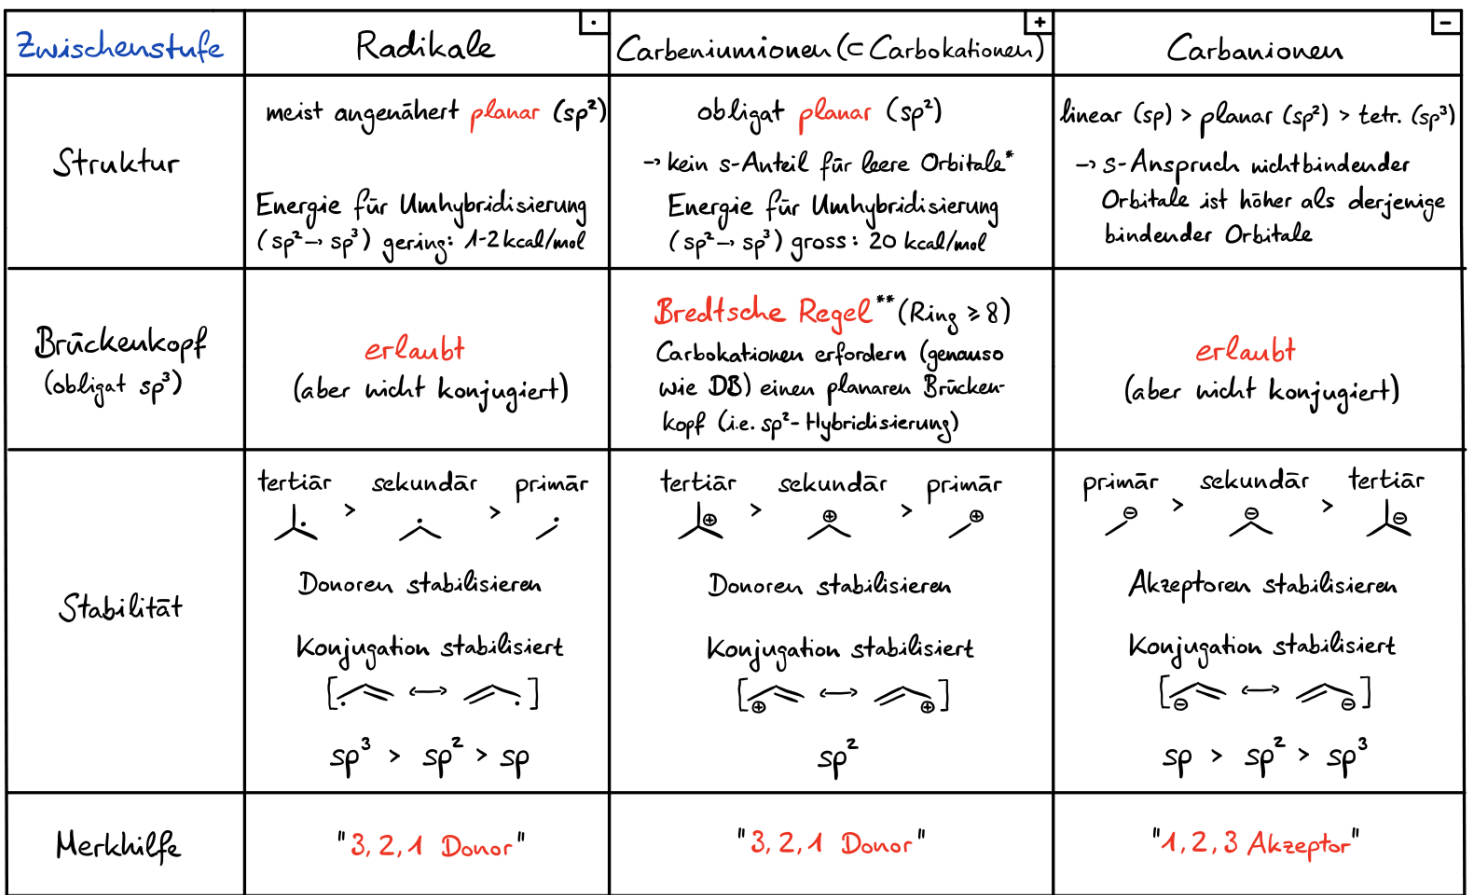 Zwischenstufe
Radikale ·
Carbeniumionen (⊂ Carbokationen) +
Carbanionen −
Struktur
meist angenähert planar (sp²)
Energie für Umhybridisierung
(sp² → sp³) gering: 1-2 kcal/mol
obligat planar (sp²)
→ kein s-Anteil für leere Orbitale*
Energie für Umhybridisierung
(sp² → sp³) gross: 20 kcal/mol
linear (sp) > planar (sp²) > tetr. (sp³)
→ s-Anspruch nichtbindender
Orbitale ist höher als derjenige
bindender Orbitale
Brückenkopf
(obligat sp³)
erlaubt
(aber nicht konjugiert)
Bredtsche Regel** (Ring ≥ 8)
Carbokationen erfordern (genauso
wie DB) einen planaren Brücken-
kopf (i.e. sp²-Hybridisierung)
erlaubt
(aber nicht konjugiert)
Stabilität
tertiär > sekundär > primär
Donoren stabilisieren
Konjugation stabilisiert
[· ↔ ·]
sp³ > sp² > sp
tertiär > sekundär > primär
⊕ ⊕ ⊕
Donoren stabilisieren
Konjugation stabilisiert
[⊕ ↔ ⊕]
sp²
primär > sekundär > tertiär
⊖ ⊖ ⊖
Akzeptoren stabilisieren
Konjugation stabilisiert
[⊖ ↔ ⊖]
sp > sp² > sp³
Merkhilfe
"3, 2, 1 Donor"
"3, 2, 1 Donor"
"1, 2, 3 Akzeptor"